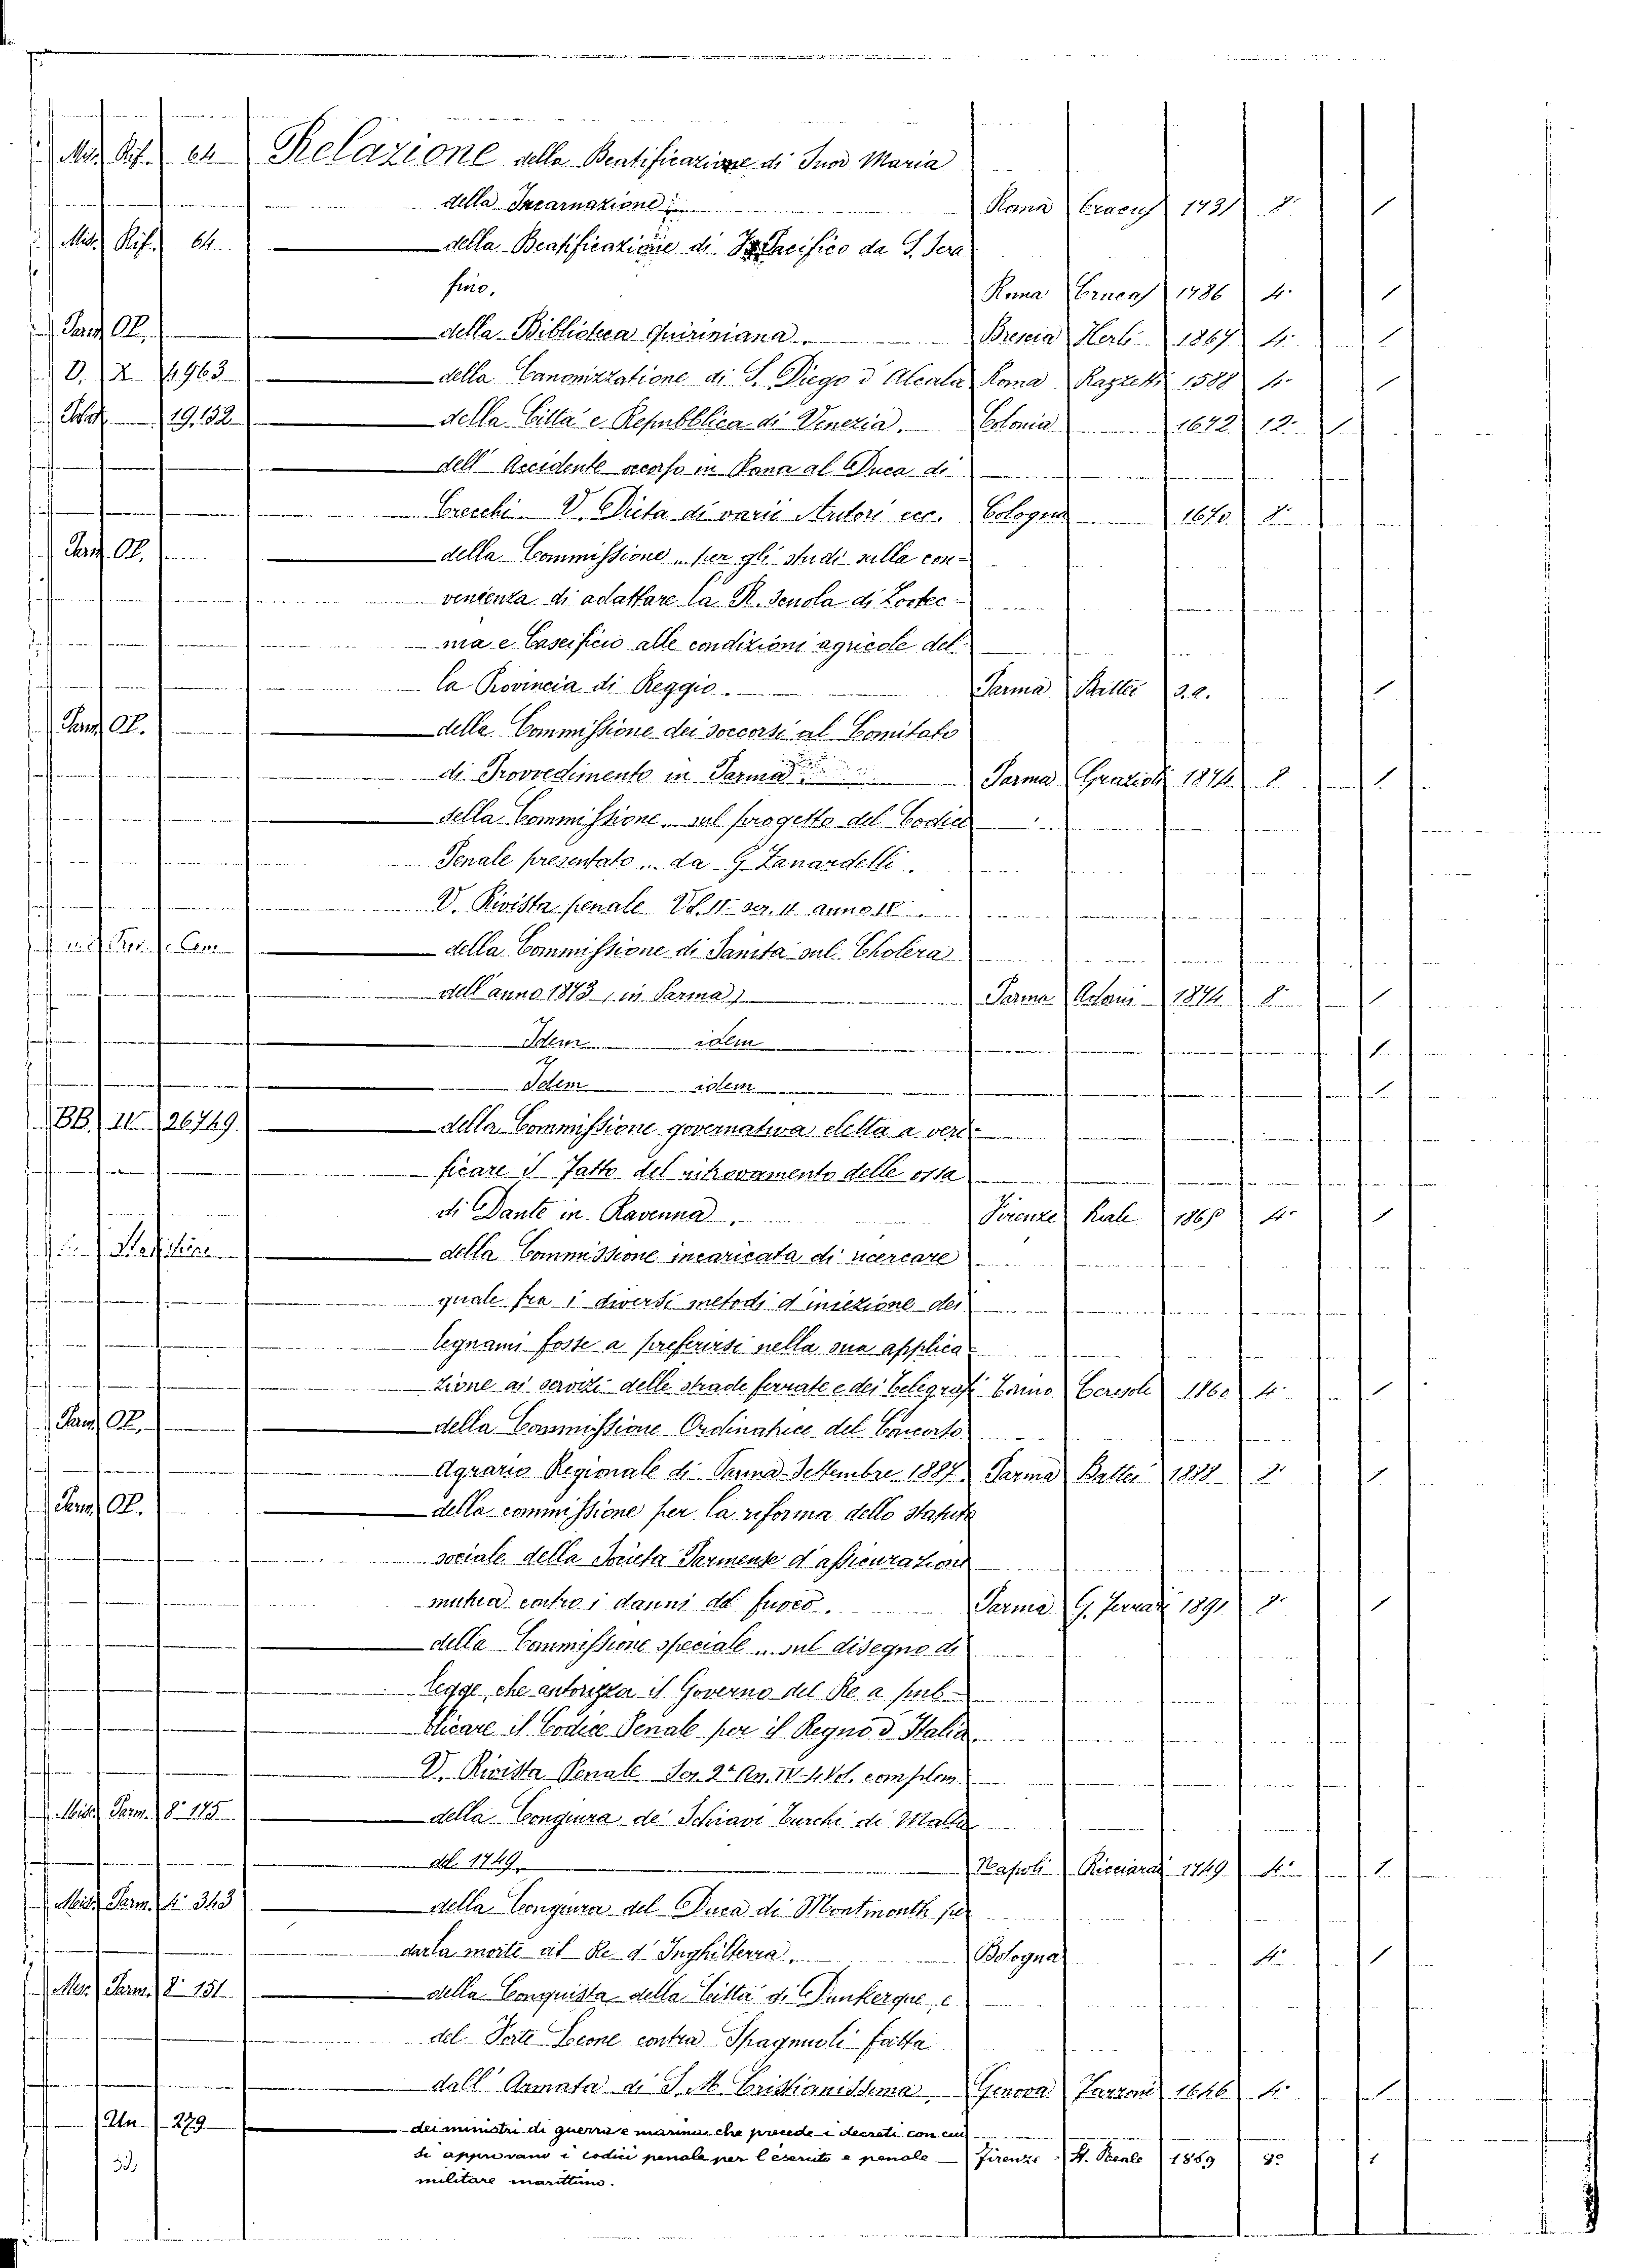 Mis. Rif. 64 Relazione della Beatificazione di Suor Maria
della Incarnazione. Roma Cracas 1731 8° 1
Mis. Rif. 64 della Beatificazione di Pacifico da S. Sera
fino. Roma Cracas 1786 4° 1
Parm. Op. della Biblioteca Quiriniana. Brescia 1867 4° 1
D. X. 4963 della Canonizzatione di S. Diego d'Alcala Roma 1588 4° 1
19,152 della Citta e Repubblica di Venezia. Colonia 1672 12° 1
dell' Accidente occorso in Roma al Duca di
Crecchi V. Scelta di varii Autori ecc. Cologna 1670 8°
Parm. Op. della Commissione per gli studi sulla con-
venienza di adattare la R. Scuola di Zootec-
nia e Caseificio alle condizioni agricole del-
la Provincia di Reggio. Parma Battei 1
Parm. Op. della Commissione dei soccorsi al Comitato
di Provvedimento in Parma Parma Grazioli 1874 8 1
della Commissione, sul progetto del Codice
Penale presentato .. da G. Zanardelli.
V. Rivista penale Vol. II ser. II anno IV
della Commissione di Sanità sul Cholera
dell'anno 1873 (in Parma) Parma Adorni 1874 8° 1
Idem idem 1
Idem idem 1
BB. IV 26749 della Commissione governativa eletta a veri-
ficare il fatto del ritrovamento delle ossa
di Dante in Ravenna. Firenze Reale 1865 4° 1
della Commissione incaricata di ricercare
quale fra i diversi metodi d'iniezione dei
legnami fosse a preferirsi nella sua applica-
zione ai servizi delle strade ferrate e dei telegrafi Torino Ceresole 1860 4° 1
Parm. Op. della Commissione Ordinatrice del Concorso
Agrario Regionale di Parma Settembre 1887. Parma Battei 1888 8° 1
Parm. Op. della commissione per la riforma dello statuto
sociale della Società Parmense d'assicurazione
mutua contro i danni del fuoco. Parma G. Ferrari 1891 8° 1
della Commissione speciale .. sul disegno di
legge, che autorizza il Governo del Re a pub-
blicare il Codice Penale per il Regno d'Italia.
V. Rivista Penale Ser. 2a An. IV 4. Vol. complem.
Misc. Parm. 8° 175 della Congiura de' Schiavi Turchi di Malta
del 1749. Napoli Ricciardi 1749. 4° 1
Misc. Parm. 4° 343 della Congiura del Duca di Montmouth per
dar la morte al Re d'Inghilterra. Bologna 4° 1
Misc. Parm. 8° 151 della Conquista della Città di Dunkerque, e
del Forte Leone contra Spagnuoli fatta
dall' Armata di S. M. Cristianissima. Genova 1646 4° 1
Un 279 dei ministri di guerra e marina che precede i decreti con cui
si approvano i codici penale per l'esercito e penale Firenze St. Reale 1869 8° 1
militare marittimo.